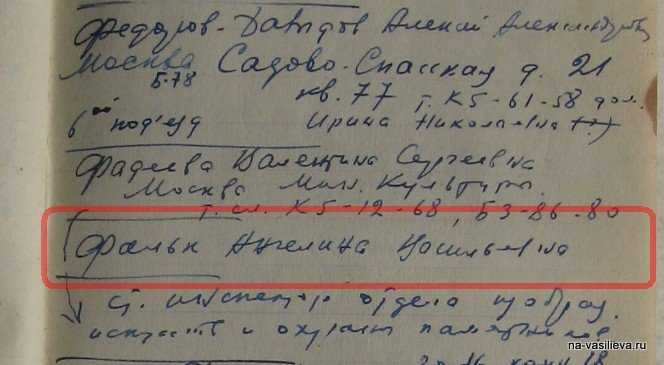 Федоров-Давыдов Алексей Александрович
Москва Садово-Спасская д. 21
Б.78 кв. 77 т. К5-61-58 дом.
6ой под'езд Ирина Николаевна
Фадеева Валентина Сергеевна
Москва Мин. Культуры.
т. сл. К5-12-68, Б3-86-80
Фальк Ангелина Васильевна
ст. инспектор отдела изобраз.
искусств и охраны памятников
на-vasilieva.ru